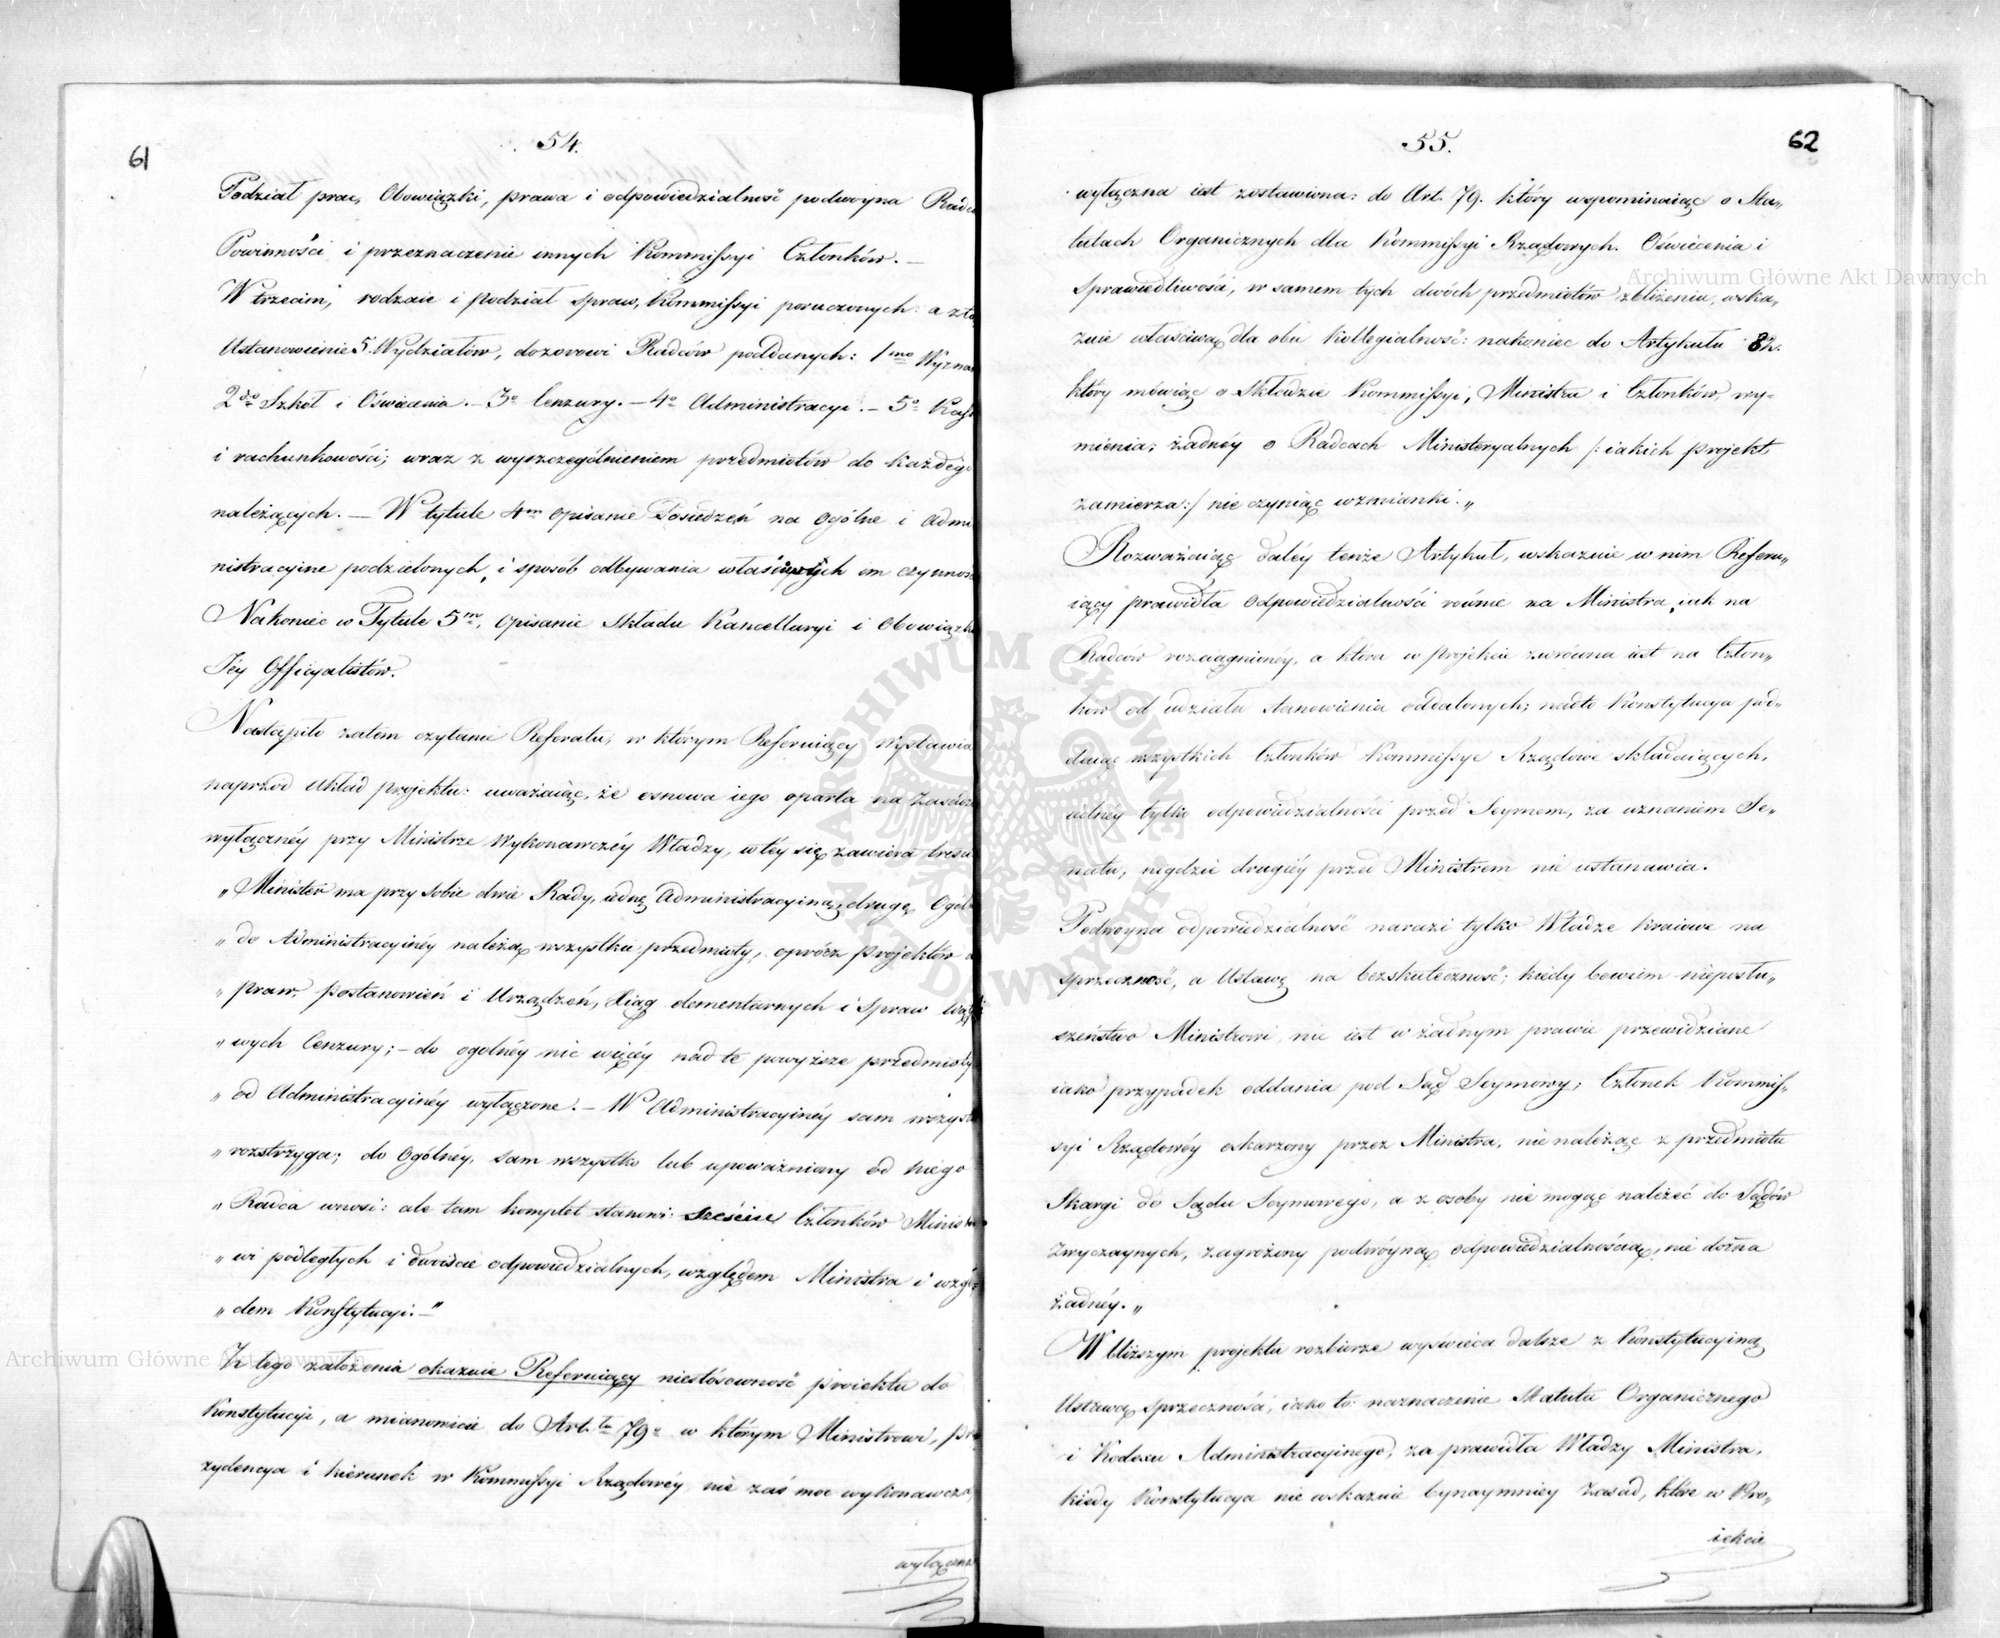 61
54.
Podział prac, Obowiązki, prawa i odpowiedzialność podwoyna Radc
Powinności i przeznaczenie innych Kommissyi Członków. —
W trzecim, rodzaie i podział spraw, Kommissyi poruczonych: a zta
Ustanowienie 5. Wydziałów, dozorowi Radców poddanych: 1mo Wyzna
2do Szkół i Oświecenia. — 3o Cenzury. — 4o Administracyi. — 5o Kass
i rachunkowości; wraz z wyszczególnieniem przedmiotów do każdego
należących. — W tytule 4m opisanie Posiedzeń na Ogólne i Admi
nistracyine podzielonych, i sposób odbywania właściwych im czynnoś
Nakoniec w Tytule 5m, opisanie Składu Kancellaryi i Obowiązk
Jéy Officyalistów.
Nastąpiło zatem czytanie Referatu, w którym Referuiący wystawia
naprzód układ projektu: uważaiąc, że osnowa iego oparta na Zasadzie
wyłącznéy przy Ministrze Wykonawczéy Władzy, w téy się zawiera tresci
„Minister ma przy sobie dwie Rady, iednę Administracyiną, drugę Ogól
„do Administracyinéy należą wszystkie przedmioty, oprócz projektów do
„praw, postanowień i Urządzeń, Xiąg elementarnych i Spraw wątpli
„wych Cenzury; — do ogolnéy nic więcéy nad te powyższe przedmioty
„od Administracyinéy wyłączone. — W Administracyinéy sam wszyst
„rozstrzyga; do Ogólnéy, sam wszystko lub upoważniony od niego
„Radca wnosi: ale tam komplet stanowi sześciu Członków Ministro
„wi podległych i dwoiście odpowiedzialnych, względem Ministra i wzglę
„dem Konstytucyi. —"
Z tego założenia okazuie Referuiący niestósowność proiektu do
Konstytucyi, a mianowicie do Art.łu 79o w którym Ministrowi, pre
zydencya i kierunek w Kommissyi Rządowéy nie zaś moc wykonawcza,
wyłączna
62
55.
wyłączna iest zostawiona: do Art. 79. który wspominaiąc o Sta„
tutach Organicznych dla Kommissyi Rządowych. Oświecenia i
Sprawiedliwości, w samem tych dwóch przedmiotów zbliżeniu, wska„
zuie właściwą dla obu Kollegialność: nakoniec do Artykułu 82.
który mówiąc o Składzie Kommissyi, Ministra i Członków, wy„
mienia; żadnéy o Radcach Ministeryalnych /: iakich projekt
zamierza :/ nie czyniąc wzmianki.„
Rozważaiąc daléy tenże Artykuł, wskazuie w nim Referu„
iący prawidła Odpowiedzialności równie na Ministra, iak na
Radców rozciągnionéy, a która w projekcie zwrócona iest na Człon„
ków od udziału stanowienia oddalonych; nadto Konstytucya pod„
daiąc wszystkich Członków Kommissye Rządowe składaiących,
iedney tylko odpowiedzialności przed Seymem, za uznaniem Se„
natu, nigdzie drugiéy przed Ministrem nie ustanawia.
Podwoyna odpowiedzialność narazi tylko Władze kraiowe na
sprzeczność, a Ustawę na bezskuteczność; kiedy bowiem niepostu„
szeństwo Ministrowi, nie iest w żadnym prawie przewidziane
iako przypadek oddania pod Sąd Seymowy; Członek Kommis„
syi Rządowéy oskarzony przez Ministra, nie należąc z przedmiotu
Skargi do Sądu Seymowego, a z osoby nie mogąc należeć do Sądów
zwyczaynych, zagrożony podwóyną odpowiedzialnością, nie dozna
żadnéy.„
W bliższym projektu rozbiorze wyświeca dalsze z Konstytucyiną
Ustawą sprzeczności, iako to: naznaczenie Statutu Organicznego
i Kodexu Administracyinego, za prawidła Władzy Ministra,
kiedy Konstytucya nie wskazuie bynaymniey Zasad, które w Pro„
iekcie
Archiwum Główne Akt Dawnych
Archiwum Główne Akt Dawnych
ARCHIWUM GŁÓWNE AKT DAWNYCH